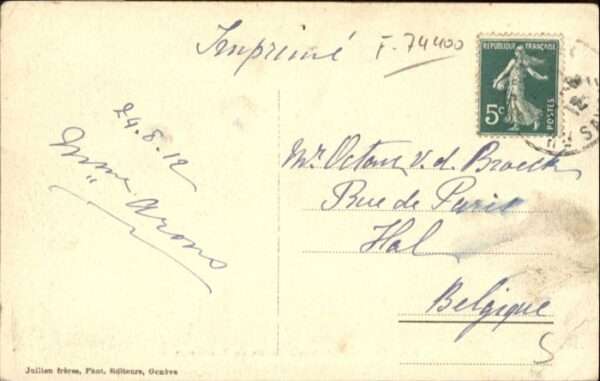 Imprimé
F-74400
REPUBLIQUE FRANÇAISE
5c
POSTES
24.8.12
Mme Arons
Mr. Octave V. d. Broeck
Rue de Paris
Hal
Belgique
Jullien frères, Phot. Editeurs, Genève